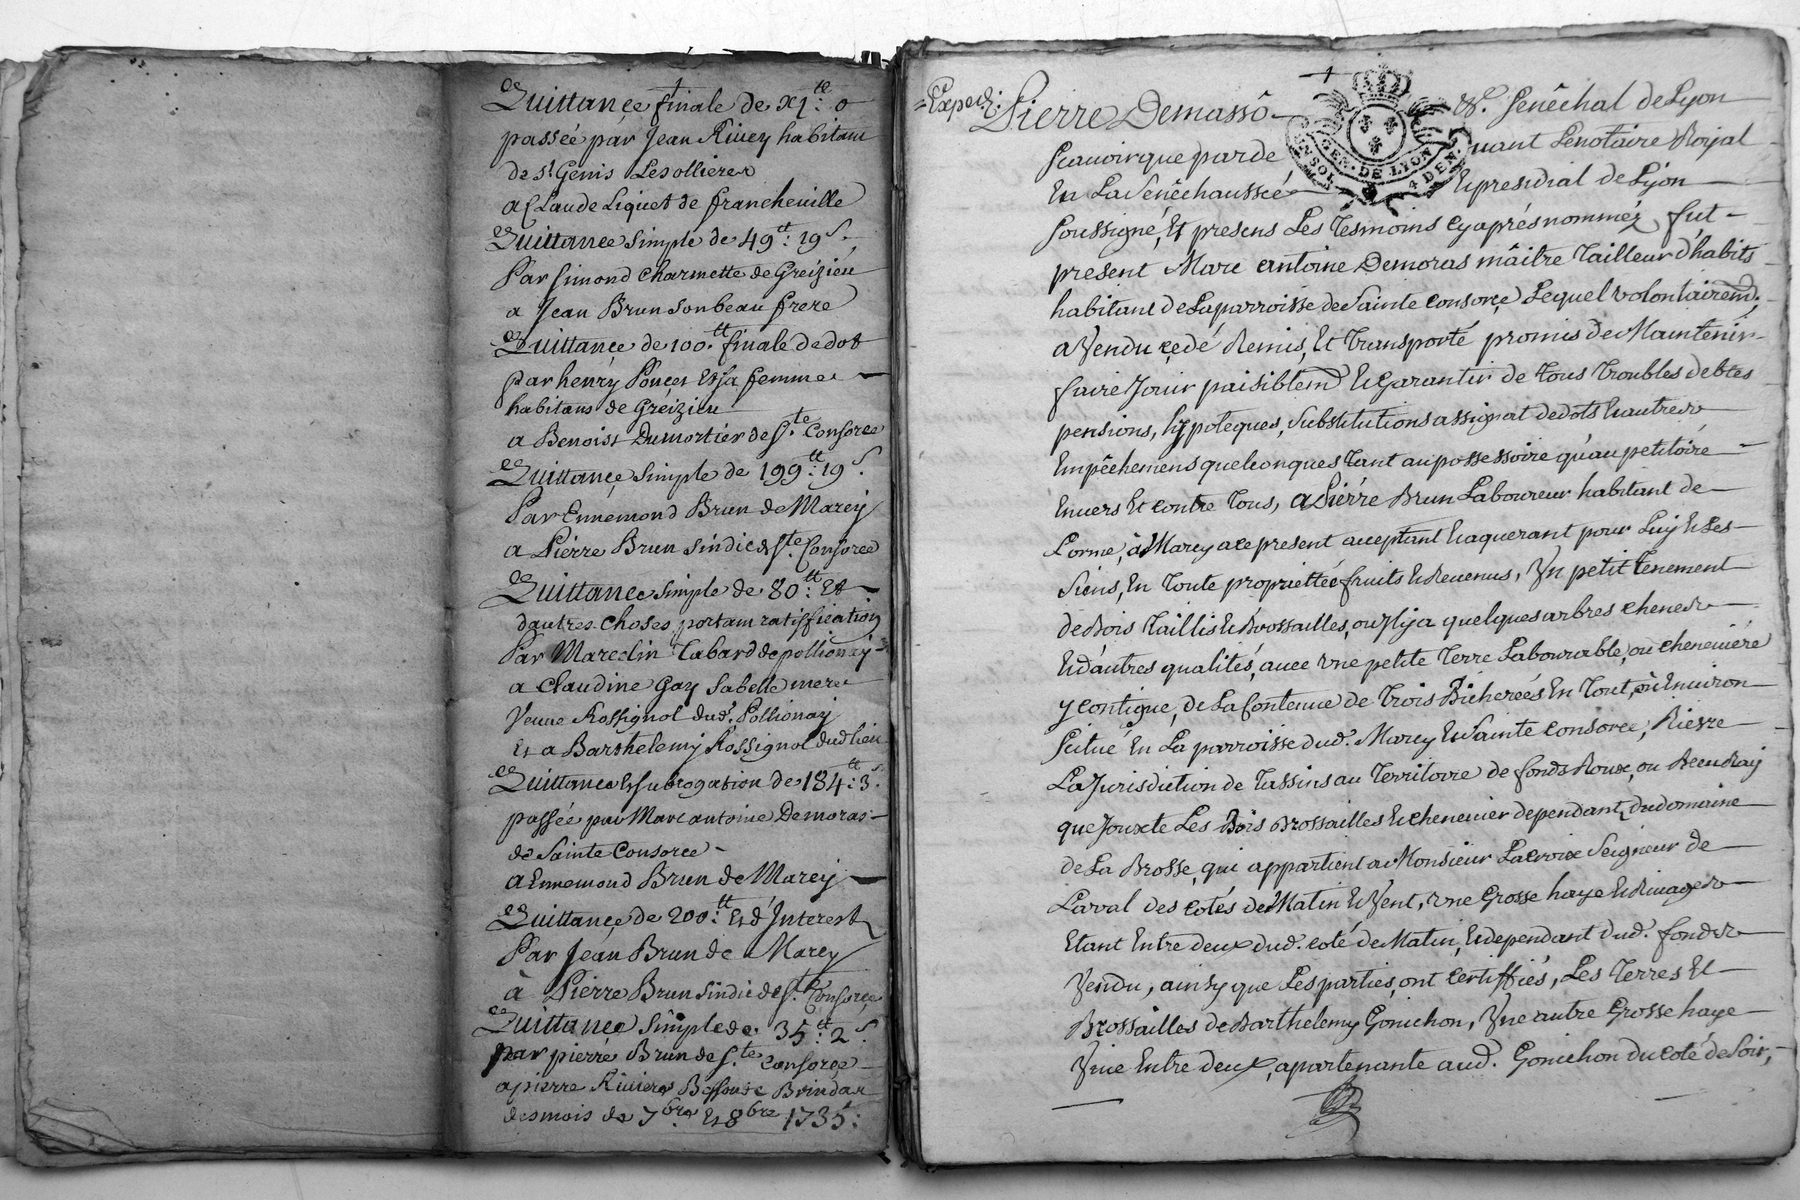 Quittance finale de xj:te o
passée par Jean Rivey habitant
de st Genis Lesollieres
a Claude Liquet de francheuille
Quittance simple de 49tt: 19s.
Par Simond Charmette de Greizieu
a Jean Brun Sonbeau frere
Quittance de 100.tt finale de dot
par henry Poncet Et sa femme
habitans de Gréizieu
a Benoist Dumortier de Ste Consorce
Quittance simple de 199tt: 19s.
Par Ennemond Brun de Marcy
a Pierre Brun Sindic de Ste. Consorce
Quittance simple de 80tt: Et
dautres choses portant ratiffication
Par Mareclin Tabard de pollionay
a Claudine Gay Sabelle mere
Veuue Rossignol dud. Pollionay
Et a Barthelemy Rossignol dud lieu
Quittance Et subrogation de 184tt: 3s.
passée par Marc antoine Demoras
de Sainte Consorce
a Ennemond Brun de Marcy
Quittance de 200tt: Et d'Interest
Par Jean Brun de Marcy
à Pierre Brun Sindic de Ste. Consorce
Quittance simple de 35tt: 2s.
par pierre Brun de Ste Consorce
a pierre Riviere Brindas
des mois de 7bre Et 8bre 1735:
Expedi:
Pierre Demasso &c. Senêchal de Lyon
GEN. DE LYON
UN SOL 4 DEN.
Scauoir que par deuant Le notaire Royal
En La Senêchaussée Et presidial de Lyon
soussigné, Et presens Les Tesmoins cy aprés nommés, fut
present Marc antoine Demoras mâitre Tailleur d'habits
habitant de La parroisse de Sainte Consorce, Lequel volontairemt,
a Vendu cedé Remis, Et Transporté promis de Maintenir
faire Jouir paisiblemt Et Garantir de tous Troubles debtes
pensions, hypoteques, Substitutions assignat de dots Et autres
Empêchemens quelconques tant au possessoire qu'au petitoire
Enuers Et contre Tous, a Pierre Brun Laboureur habitant de
Lorme, à Marcy ace present acceptant Et aquerant pour Luy Et Les
Siens, En Toute proprietteé fruits Et Reuenus, Un petit Tenement
de Bois Taillis Et Brossailles, ou Il y a quelques arbres chenes
Et d'autres qualités, auec Une petite Terre Labourable, ou cheneuiére
y contigue, de La Contenue de Trois Bicherées En Tout, où Enuiron
Scitué En La parroisse dud. Marcy Et Sainte Consorce, Riere
La Jurisdiction de Tassins au Territoire de fonds Roux, ou
que Jouxte Les Bois Brossailles Et cheneuier dependant du domaine
de La Brosse, qui appartient a Monsieur Lacroix Seigneur de
Laval des cotés de Matin Et Vent, Une Grosse haye Et Riuages
Etant Entre deux dud. coté de Matin, Et dependant dud. fonds
Vendu, ainsy que Les parties, ont Certiffiés, Les Terres Et
Brossailles de Barthélemy Gonichon, Une autre Grosse haye
Viue Entre deux, apartenante aud. Gonichon du coté de Soir,